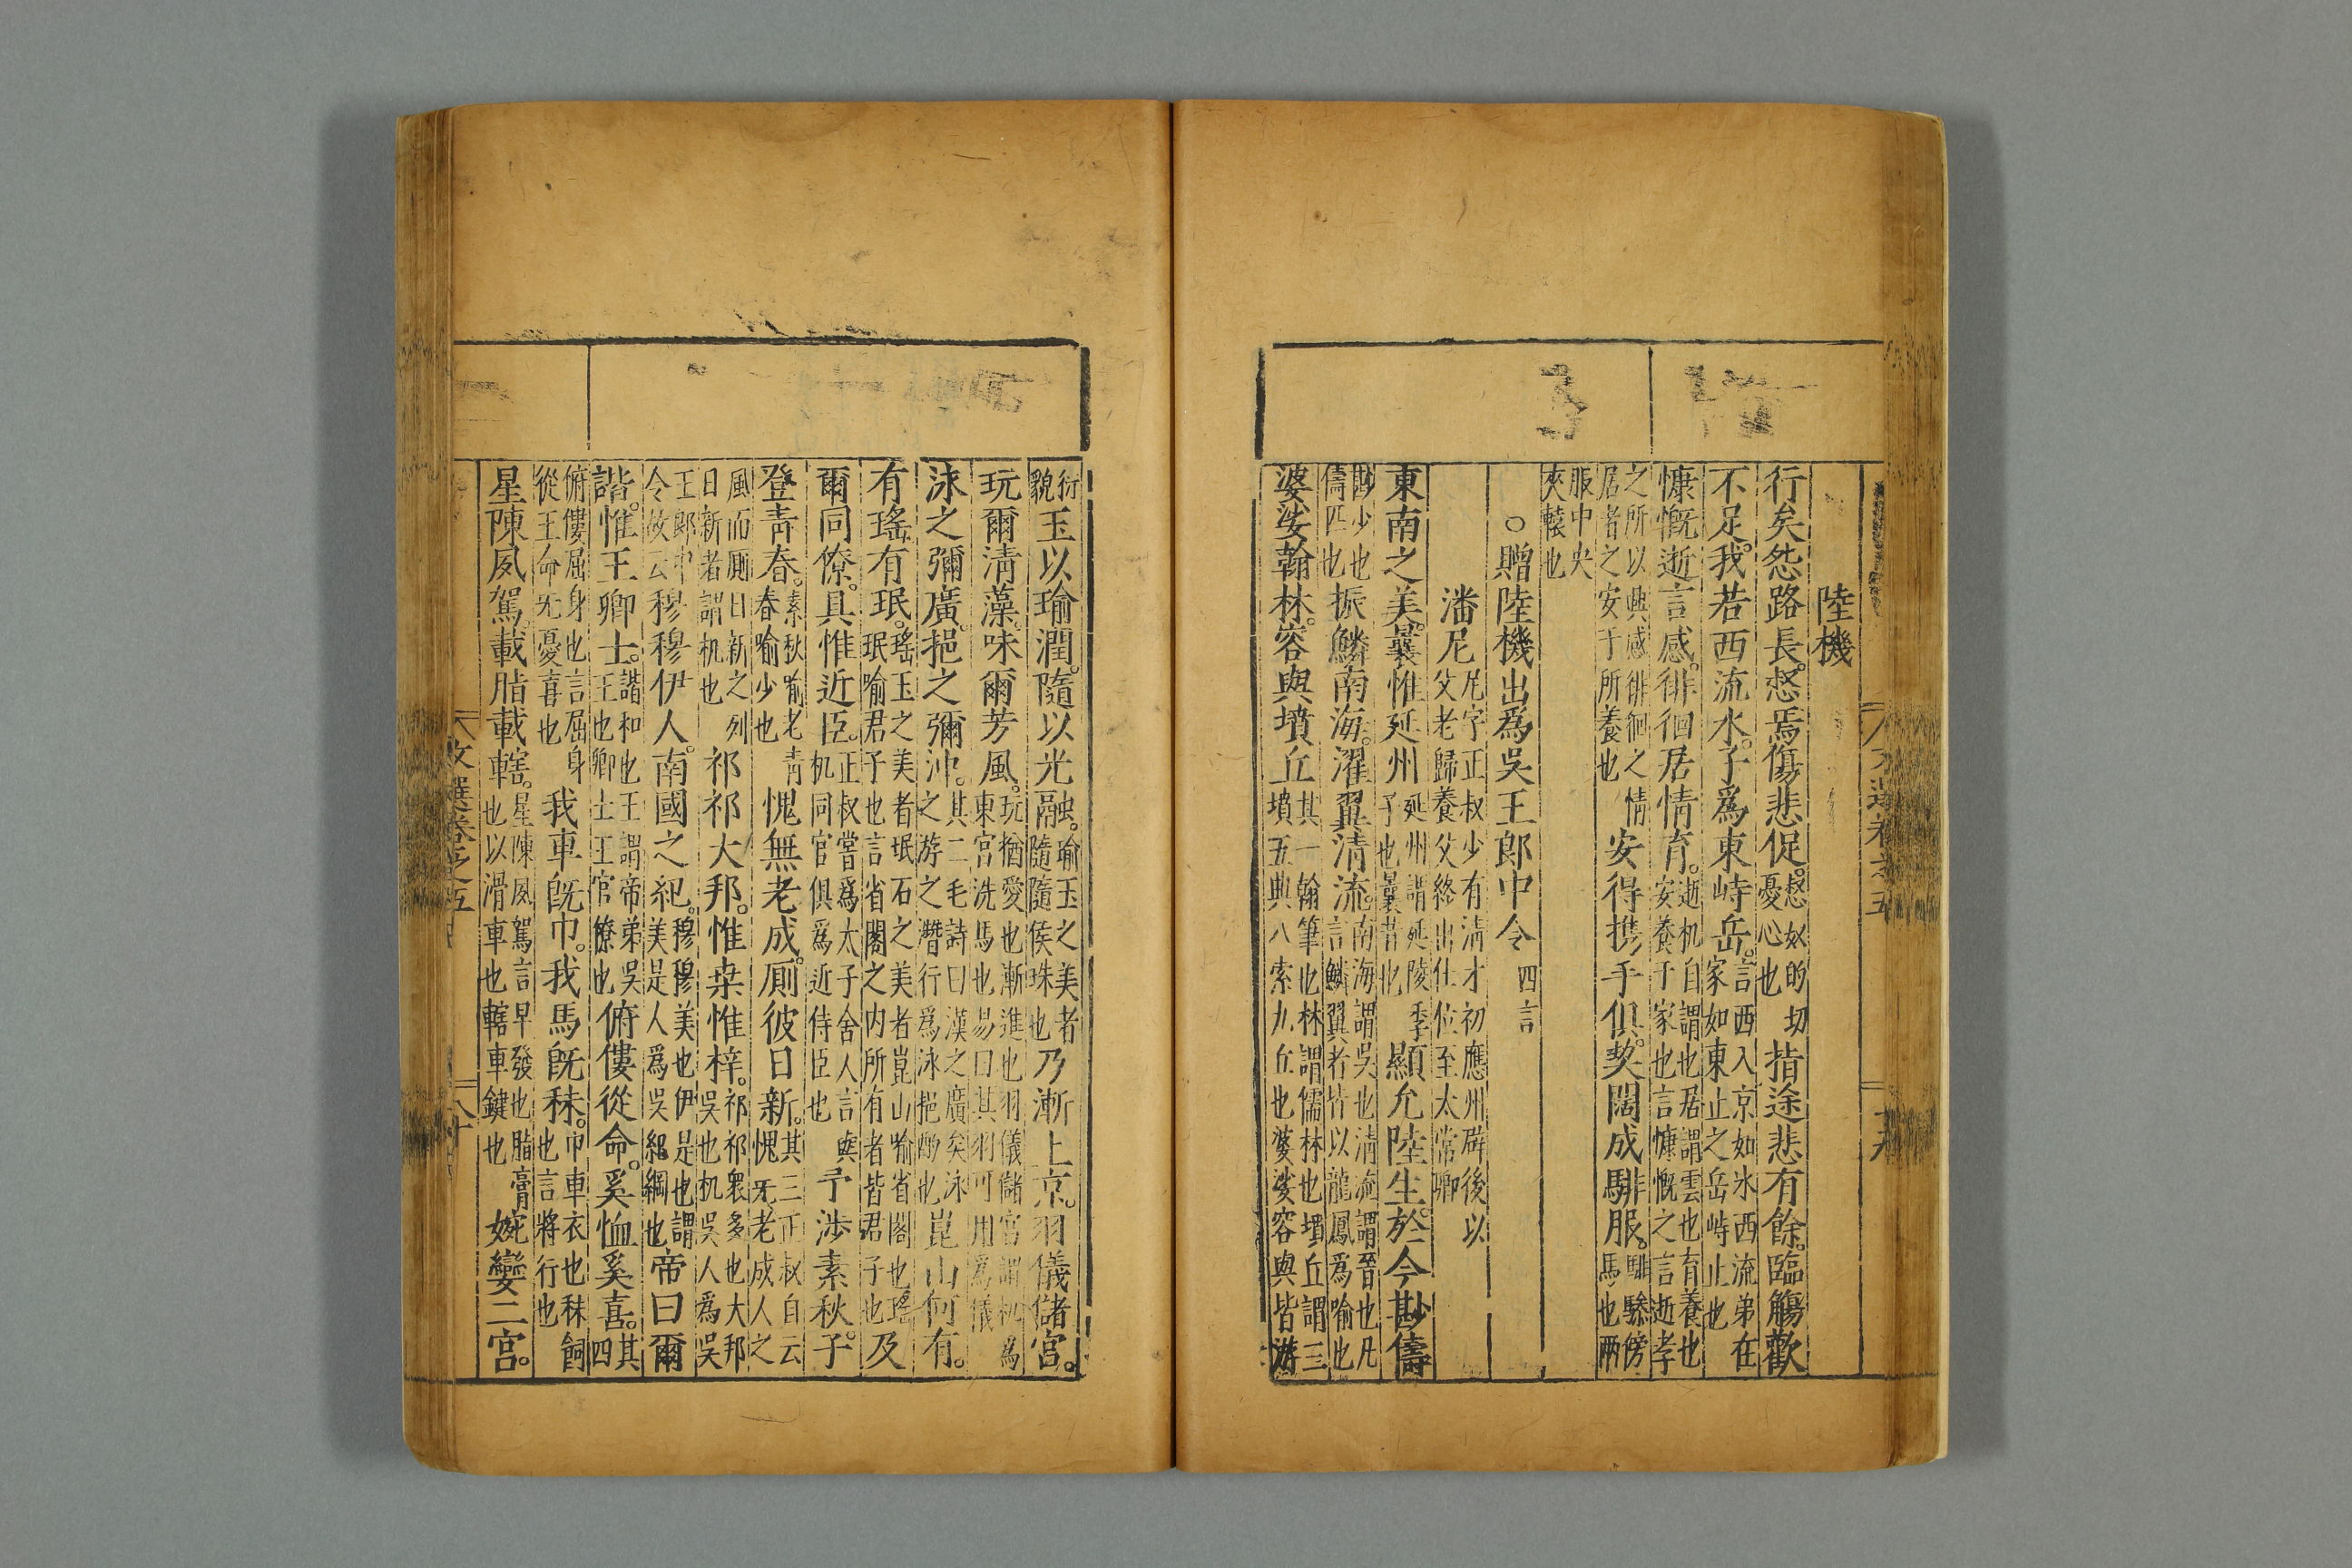 陸機
行矣怨路長。惄焉傷悲促。惄奴的切憂心也指途悲有餘。臨觴歡
不足。我若西流水。子為東峙岳。言西入京如氷西流弟在家如東止之岳峙止也
慷慨逝言感。徘徊居情育。逝机自謂也居謂雲也育養也安養于家也言慷慨之言逝孝
之所以興感徘徊之情居者之安于所養也安得携手俱。契闊成騑服。騑驂傍馬也兩
服中央夾轅也
○贈陸機出為吳王郎中令 四言
潘尼 尼字正叔少有清才初應州辟後以父老歸養父終出仕位至太常卿
東南之美。曩惟延州延州謂延陵季子也曩昔也顯允陸生。於今尠儔
尠少也儔匹也振鱗南海。濯翼清流。南海謂吳也清流謂晉也凡言鱗翼者皆以龍鳳為喻也
婆娑翰林。容與墳丘其一翰筆也林謂儒林也墳丘謂三墳五典八索九丘也婆娑容與皆游
衍貌玉以瑜潤。隨以光融。瑜玉之美者隨隨侯珠也乃漸上京。羽儀儲宮。
玩爾清藻。味爾芳風。玩猶愛也漸進也羽儀儲宮謂机為東宮洗馬也易曰其羽可用為儀
泳之彌廣。挹之彌沖。其二毛詩曰漢之廣矣泳之游之潛行為泳挹酌也崑山何有。
有瑤有珉。瑤玉之美者珉石之美者崑山喻省閣也瑤珉喻君子也言省閣之内所有者皆君子也及
爾同僚。具惟近臣。正叔嘗為太子舍人言與机同官俱為近侍臣也予涉素秋。子
登青春。素秋喻老青春喻少也愧無老成。厠彼日新。其三正叔自云愧无老成人之
風而厠日新之列日新者謂机也祁祁大邦。惟桒惟梓。祁祁衆多也大邦吳也机吳人為吳
王郎中令故云穆穆伊人。南國之紀。穆穆美也伊是也謂美是人為吳紀綱也帝曰爾
諧。惟王卿士。諧和也王謂帝弟吳王也卿士王官僚也俯僂從命。奚恤奚喜。其四
俯僂屈身也言屈身從王命无憂喜也我車既巾。我馬既秣。巾車衣也秣飼也言將行也
星陳夙駕。載脂載轄。星陳夙駕言早發也脂膏也以滑車也轄車鍵也婉孌二宮。
文選卷之五